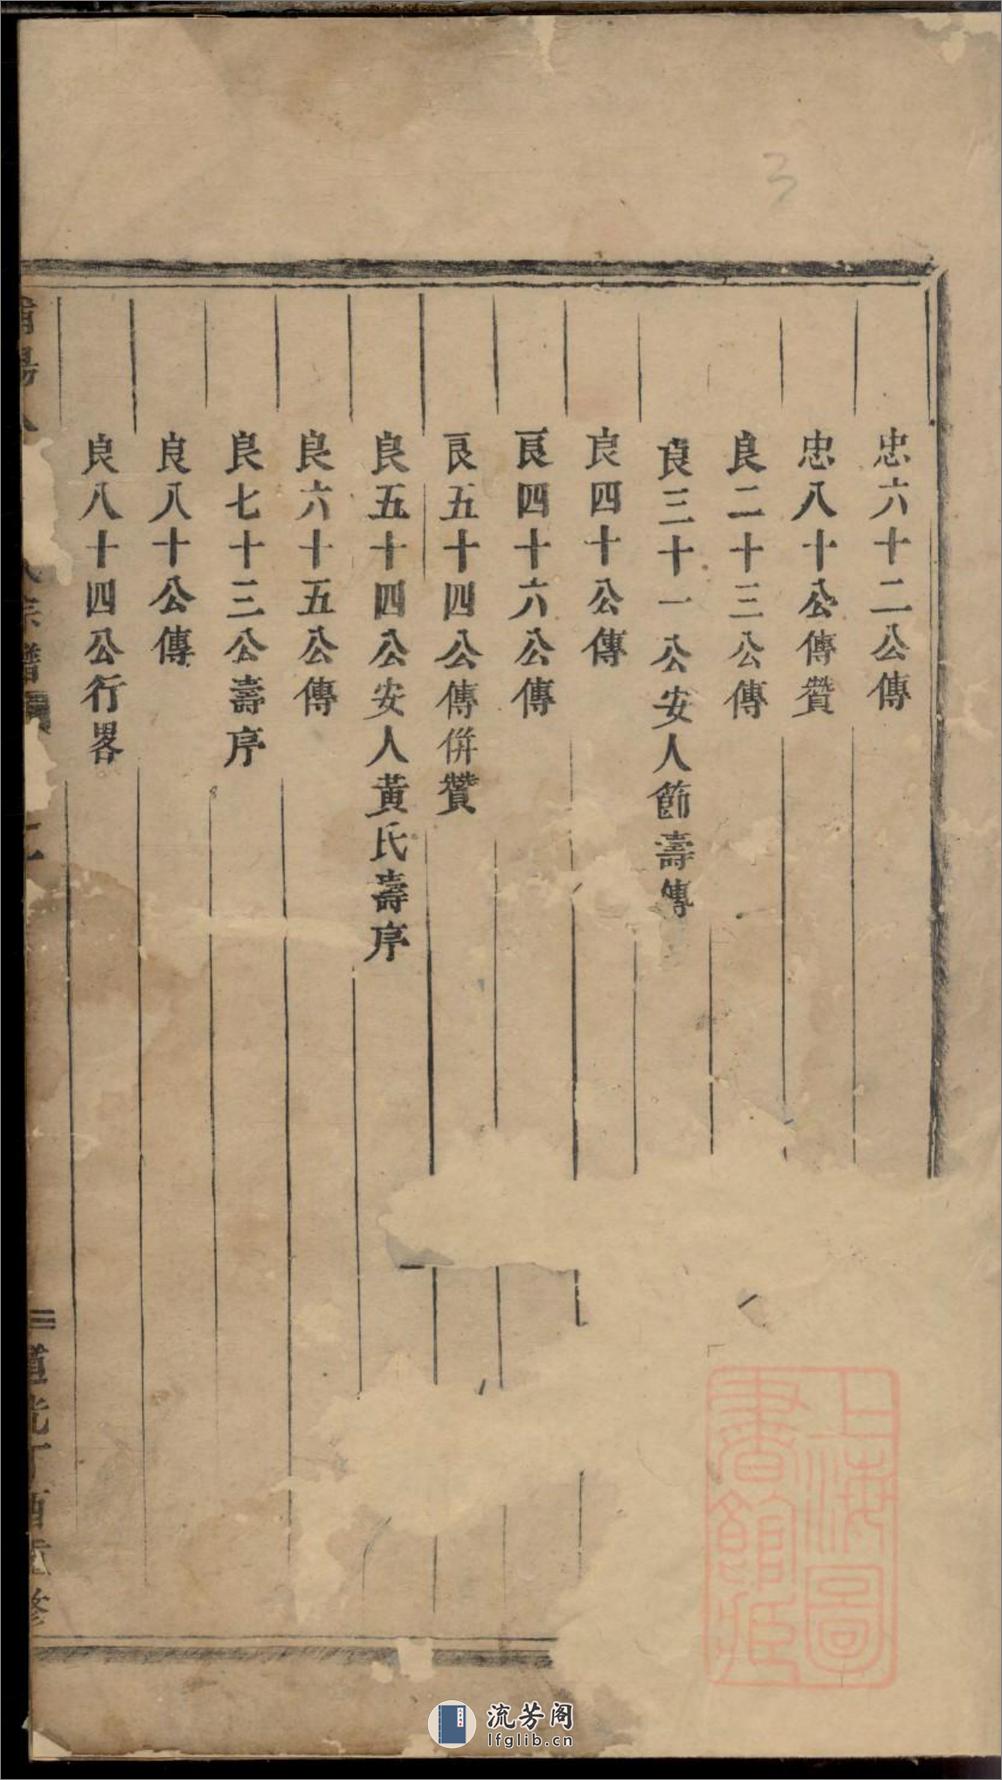 忠六十二公傳
忠八十公傳贊
良二十三公傳
良三十一公安人節壽傳
良四十公傳
良四十六公傳
良五十四公傳併贊
良五十四公安人黃氏壽序
良六十五公傳
良七十三公壽序
良八十公傳
良八十四公行畧
宗譜
道光丁酉重修
上海圖書館藏
3
流芳阁
lfglib.cn